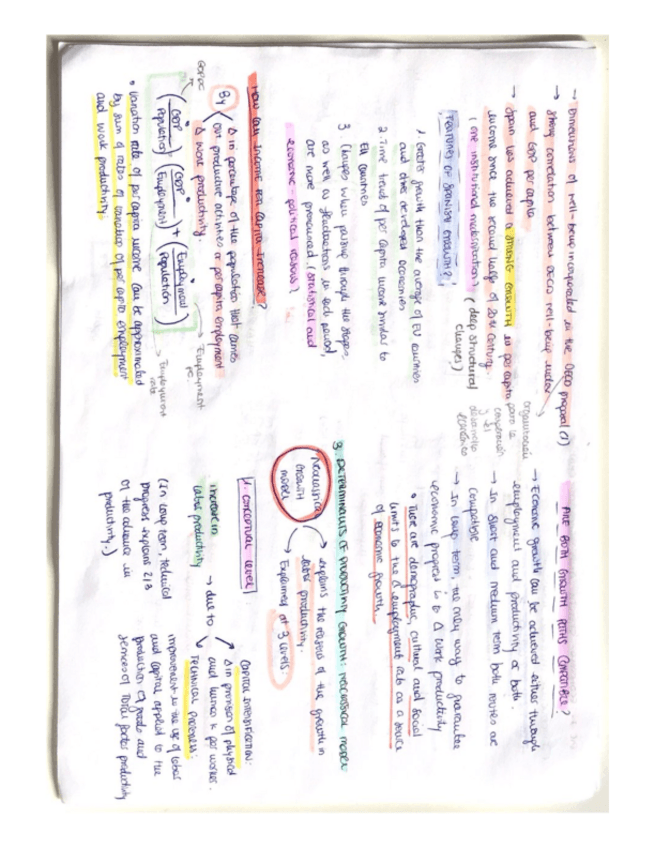 → Dimensions of well-being incorporated in the OECD proposal (1)
→ Strong correlation between OECD well-being index
and GDP per capita
organización
para la
cooperación
y el
desarrollo
económico
→ Spain has achieved a STRONG GROWTH in per capita
income since the second half of 20th century.
(one institutional modernization) (deep structural
changes?)
FEATURES OF SPANISH GROWTH?
1. Greater growth than the average of EU countries
and other developed economies
2. Time trend of per capita income similar to
EU countries
3. Changes when passing through the stages,
as well as fluctuations in each period,
are more pronounced. (statistical and
economic-political reasons)
HOW CAN INCOME PER CAPITA INCREASE?
By
Δ in percentage of the population that carries
out productive activities or per capita employment
Δ work productivity.
GDP pc
(GDP / Population) = (GDP / Employment) + (Employment / Population)
Employment pc.
Employment
rate
• Variation rate of per capita income can be approximated
by sum of rates of variation of per capita employment
and work productivity.
ARE BOTH GROWTH PATHS COMPATIBLE?
→ Economic growth can be achieved either through
employment and productivity or both.
→ In short and medium term both routes are
compatible.
→ In long term, the only way to guarantee
economic progress is to Δ work productivity
• There are demographic, cultural and social
limits to the Δ employment rate as a source
of economic growth.
3. DETERMINANTS OF PRODUCTIVITY GROWTH: NEOCLASSICAL MODEL
Neoclassical
growth
model
→ explains the reasons of the growth in
labor productivity.
→ Explained at 3 levels:
1. CONCEPTUAL LEVEL
Increase in
labor productivity
→ due to
CAPITAL INTENSIFICATION:
Δ in provision of physical
and human K per worker.
TECHNICAL PROGRESS:
improvement in the use of labor
and capital applied to the
production of goods and
services or Total factor productivity
(In long term, technical
progress explains 2/3
of the advance in
productivity.)